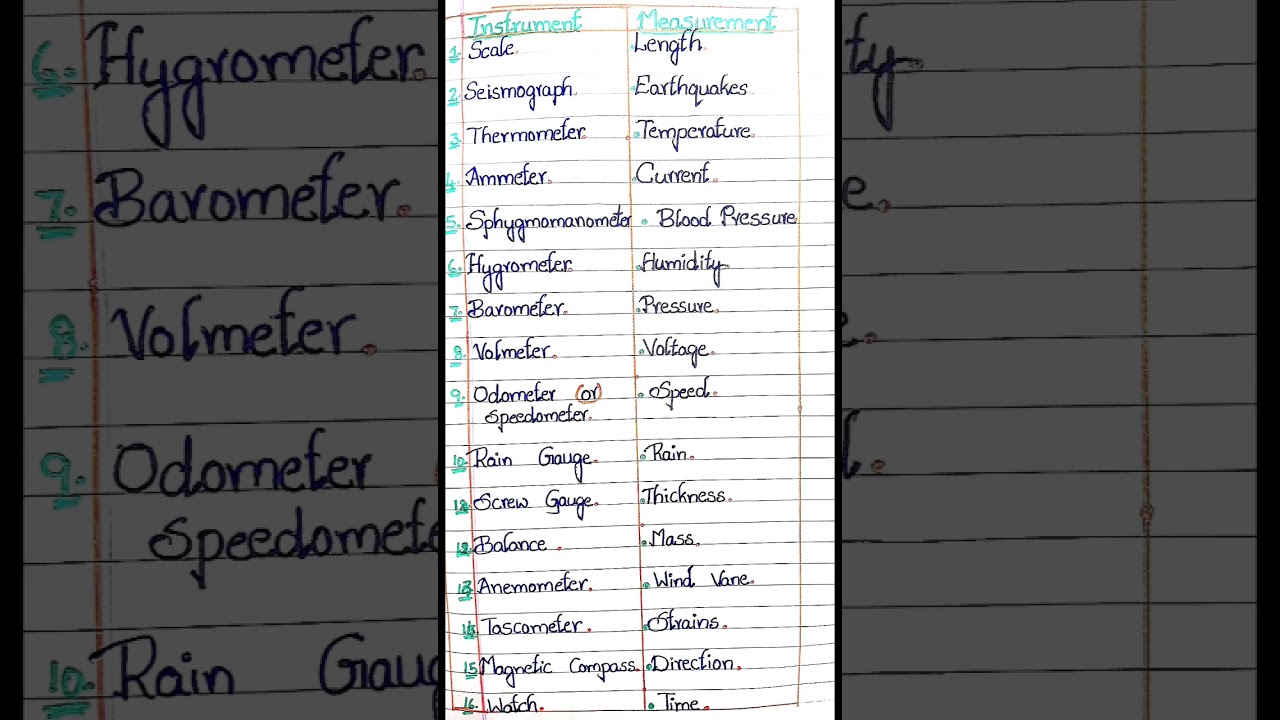 Instrument Measurement
1. Scale. Length.
2. Seismograph. Earthquakes
3. Thermometer. Temperature.
4. Ammeter. Current.
5. Sphygmomanometer Blood Pressure
6. Hygrometer. Humidity
7. Barometer. Pressure.
8. Volmeter. Voltage.
9. Odometer (or) Speed.
Speedometer.
10. Rain Gauge. Rain.
Screw Gauge. Thickness.
12. Balance. Mass.
13. Anemometer. Wind Vane.
Tascometer. Strains.
15. Magnetic Compass. Direction.
16. Watch. Time.
6. Hygrometer.
7. Barometer.
8. Volmeter.
9. Odometer
Speedomete
10. Rain Gaug
ty.
e.